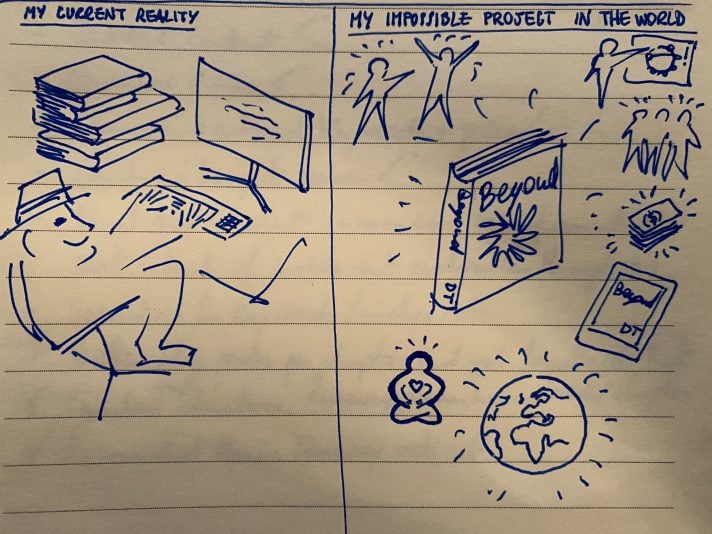 MY CURRENT REALITY
MY IMPOSSIBLE PROJECT IN THE WORLD
Beyond
Beyond DT
$
Beyond
DT